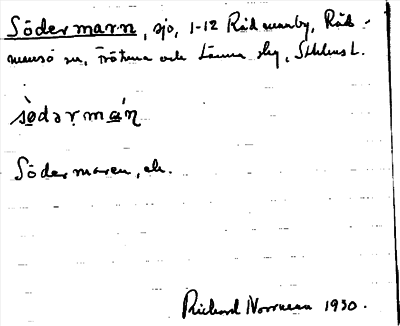 Södermarn, sjö, 1-12 Rådmanby, Råd-
mansö sn, Frötuna och Länna skg, Sthlms l.
sø̀dərmán
Södermaren, ek.
Richard Norrman 1930.